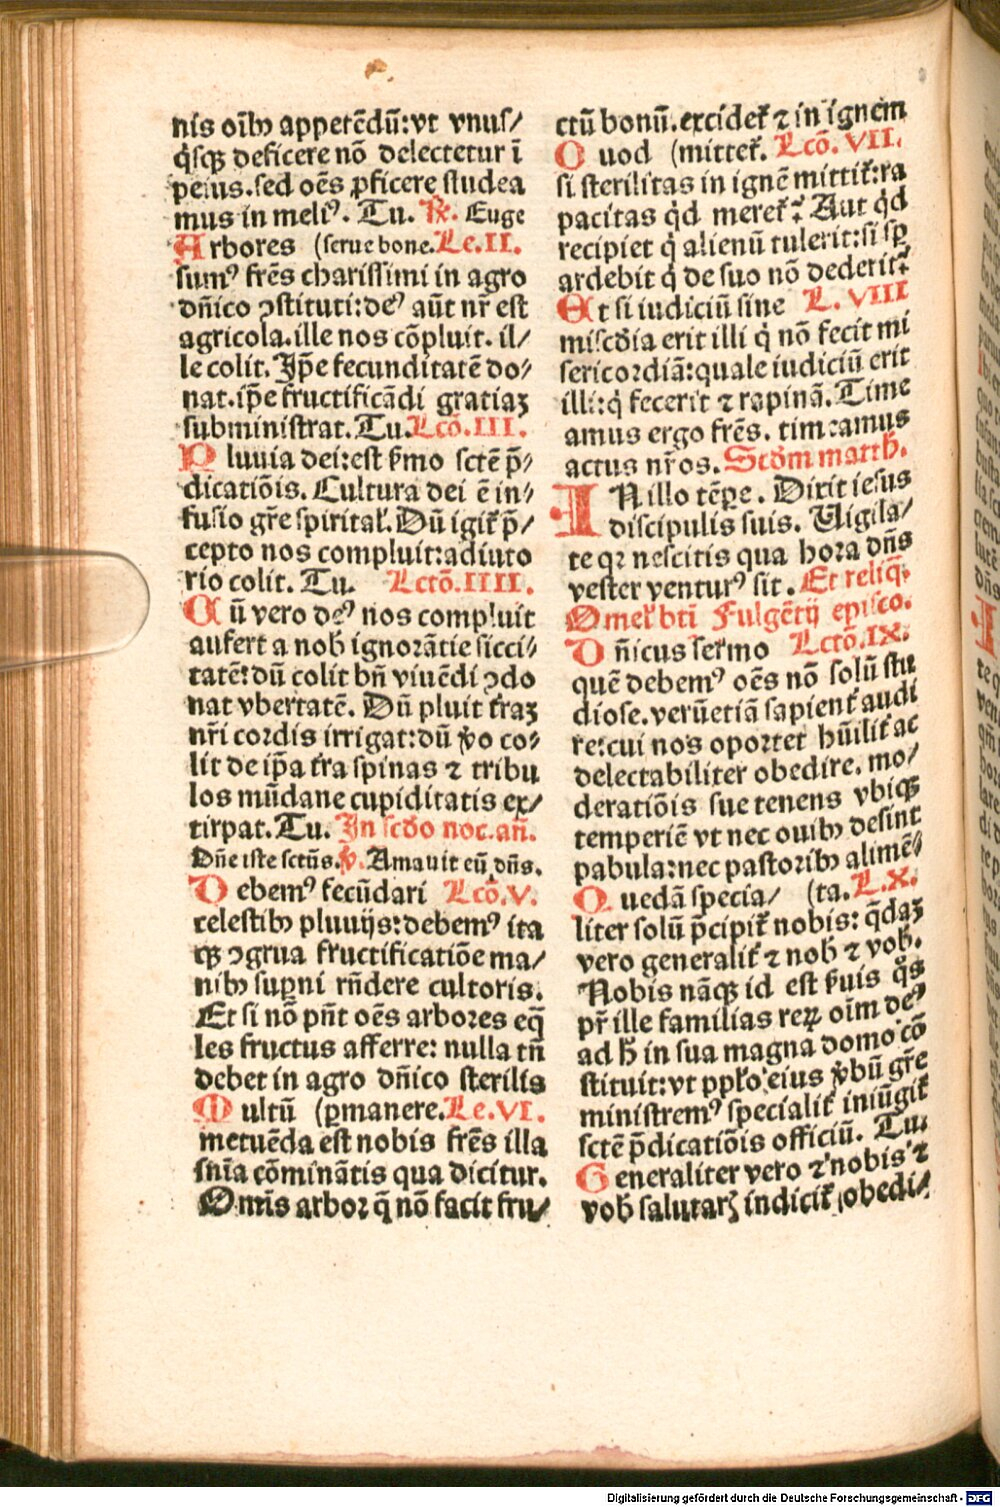 nis oīb⁹ appetēdū: vt vnus/
q̇sqꝫ deficere nō delectetur ī
peius. sed oēs ꝓficere studea
mus in meli⁹. Tu. ℟. Euge
Arbores (serue bone. Le. II.
sum⁹ frēs charissimi in agro
dn̄ico ꝯstituti: de⁹ aūt nr̄ est
agricola. ille nos cōpluit. il/
le colit. Ip̄e fecunditatē do/
nat. ip̄e fructificādi gratiaꝫ
subministrat. Tu. Lcō. III.
Pluuia dei: est ẜmo sctē p̄/
dicatiōis. Cultura dei ē in/
fusio gr̄e spirital̕. Dū igit̕ p̄/
cepto nos compluit: adiuto
rio colit. Tu. Lctō. IIII.
Cū vero de⁹ nos compluit
aufert a nob̄ ignorātie sicci/
tatē: dū colit bn̄ viuēdi ꝯdo
nat vbertatē. Dū pluit t̕raꝫ
nr̄i cordis irrigat: dū v̕o co/
lit de ip̄a t̕ra spinas ⁊ tribu
los mūdane cupiditatis ex/
tirpat. Tu. In scd̄o noc. an̄.
Dn̄e iste sctūs. ℣. Amauit eū dn̄s.
Debem⁹ fecūdari Lcō. V.
celestib⁹ pluuijs: debem⁹ ita
qꝫ ꝯgrua fructificatiōe ma/
nib⁹ suꝑni rn̄dere cultoris.
Et si nō pn̄t oēs arbores eq̄
les fructus afferre: nulla tn̄
debet in agro dn̄ico sterilis
Multū (ꝑmanere. Le. VI.
metuēda est nobis frēs illa
sn̄ia cōminātis qua dicitur.
Omīs arbor q̄ nō facit fru/
ctū bonū. excidet̕ ⁊ in ignem
Quod (mittet̕. Lcō. VII.
si sterilitas in ignē mittit̕: ra
pacitas qd̕ meret̕? Aut qd̕
recipiet q̇ alienū tulerit: si sꝑ
ardebit q̇ de suo nō dederit?
Et si iudiciū sine L. VIII
miscd̄ia erit illi q̇ nō fecit mi
sericordiā: quale iudiciū erit
illi: q̇ fecerit ⁊ rapinā. Time
amus ergo frēs. timeamus
actus nr̄os. Scd̄m matth̄.
IN illo tēꝑe. Dixit iesus
discipulis suis. Uigila/
te qꝛ nescitis qua hora dn̄s
vester ventur⁹ sit. Et reliq̄.
Omel̕ bti Fulgētij ep̄isco.
Dn̄icus sermo Lctō. IX.
quē debem⁹ oēs nō solū stu
diose. verūetiā sapient̕ audi
re: cui nos oportet hūilit̕ ac
delectabiliter obedire. mo/
deratiōis sue tenens vbiqꝫ
temperiē vt nec ouib⁹ desint
pabula: nec pastorib⁹ alimē/
Quedā specia/ (ta. L. X.
liter solū p̄cipit̕ nobis: q̄daꝫ
vero generalit̕ ⁊ nob̄ ⁊ vob̄.
Nobis nāqꝫ id est ẜuis q̇s
pr̄ ille familias reꝝ oīm de⁹
ad h̄ in sua magna domo cō
stituit: vt ppl̕o eius v̕bū gr̄e
ministrem⁹ specialit̕ iniūgit̕
sctē p̄dicatiōis officiū. Tu.
Generaliter vero ⁊ nobis ⁊
vob̄ salutarꝫ indicit̕ obedi/
Digitalisierung gefördert durch die Deutsche Forschungsgemeinschaft - DFG